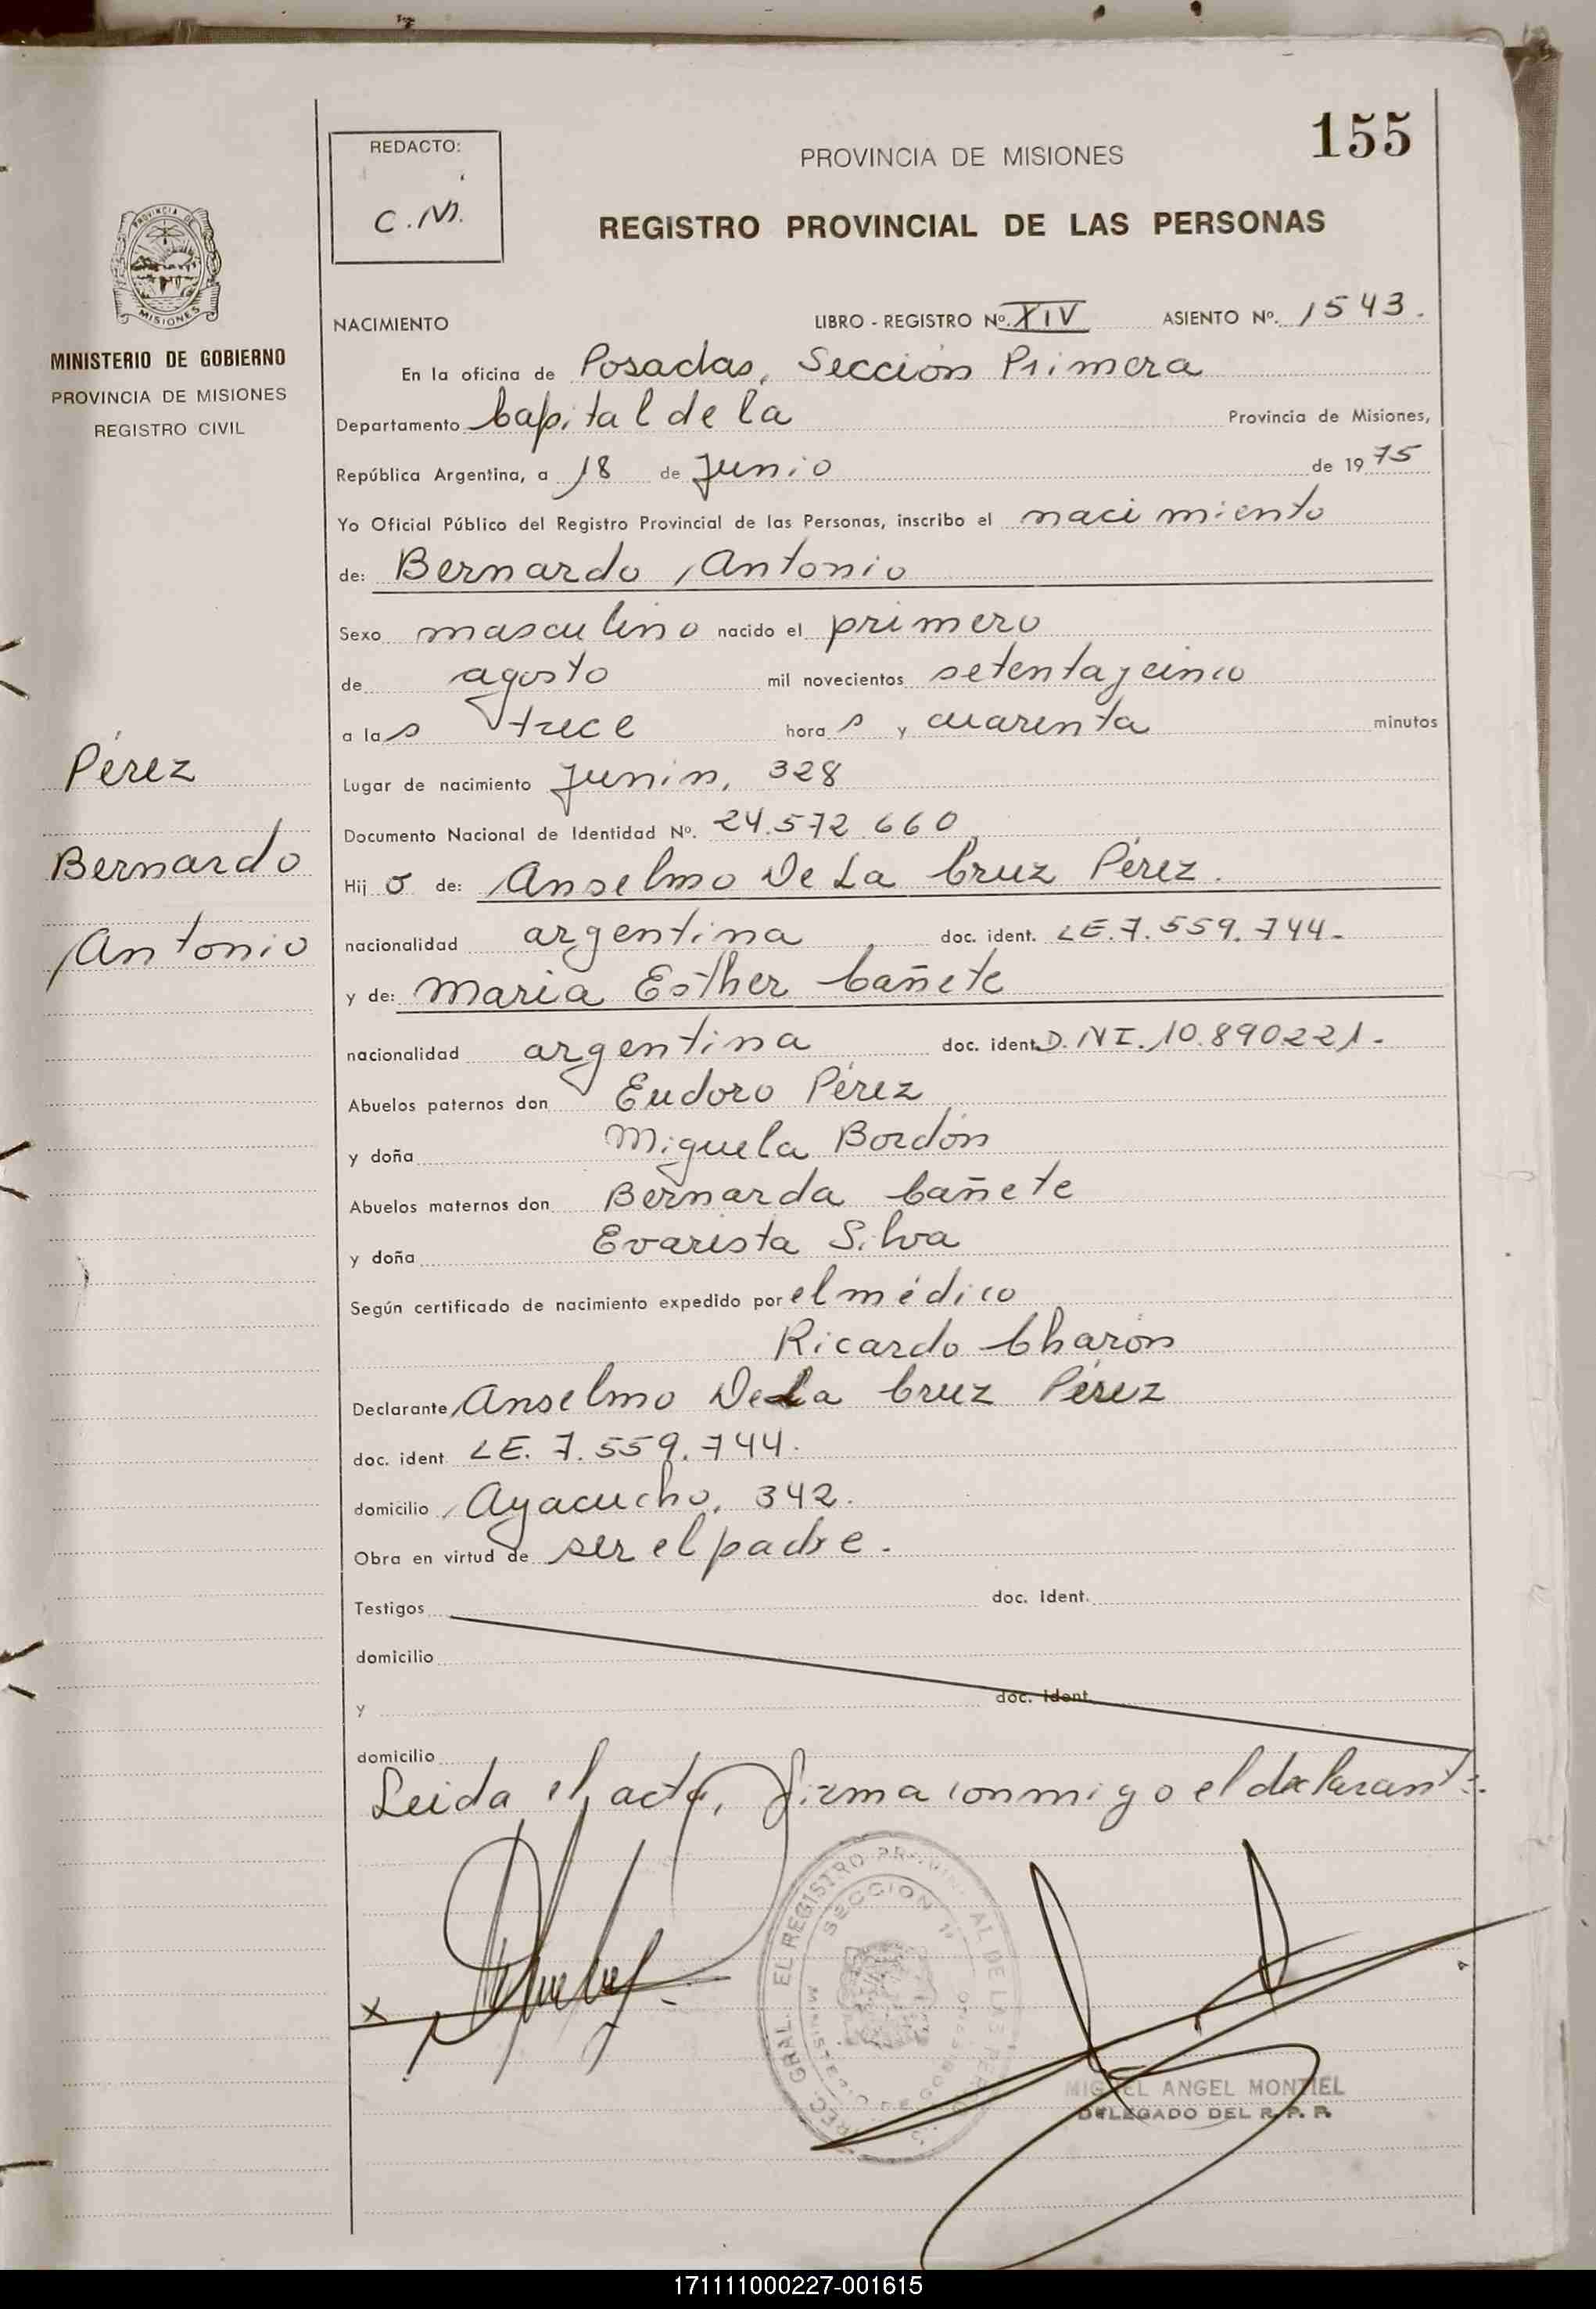 155
REDACTO:
C.M.
PROVINCIA DE MISIONES
REGISTRO PROVINCIAL DE LAS PERSONAS
MISIONES
MINISTERIO DE GOBIERNO
PROVINCIA DE MISIONES
REGISTRO CIVIL
NACIMIENTO LIBRO - REGISTRO Nº. XIV ASIENTO Nº. 1543.
En la oficina de Posadas, Sección Primera
Departamento Capital de la Provincia de Misiones,
República Argentina, a 18 de Junio de 1975
Yo Oficial Público del Registro Provincial de las Personas, inscribo el nacimiento
de: Bernardo Antonio
Sexo masculino nacido el primero
de agosto mil novecientos setenta y cinco
a las trece horas y cuarenta minutos
Pérez
Bernardo
Antonio
Lugar de nacimiento Junín, 328
Documento Nacional de Identidad Nº. 24.572.660
Hijo de: Anselmo De La Cruz Pérez.
nacionalidad argentina doc. ident. LE. 7.559.744-
y de: Maria Esther Cañete
nacionalidad argentina doc. ident. D.NI. 10.890221-
Abuelos paternos don Eudoro Pérez
y doña Miguela Bordón
Abuelos maternos don Bernarda Cañete
y doña Evarista Silva
Según certificado de nacimiento expedido por el médico
Ricardo Charón
Declarante Anselmo De La Cruz Pérez
doc. ident LE. 7.559.744.
domicilio Ayacucho, 342.
Obra en virtud de ser el padre.
Testigos doc. ident.
domicilio
y doc. ident.
domicilio
Leida el acta, firma conmigo el declarante.
x
SECCION 1ª
MIGUEL ANGEL MONTIEL
DELEGADO DEL R. P. P.
171111000227-001615